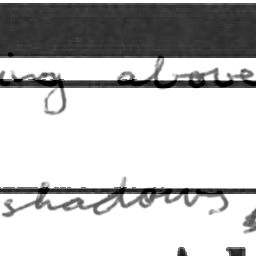 ing above
shadows